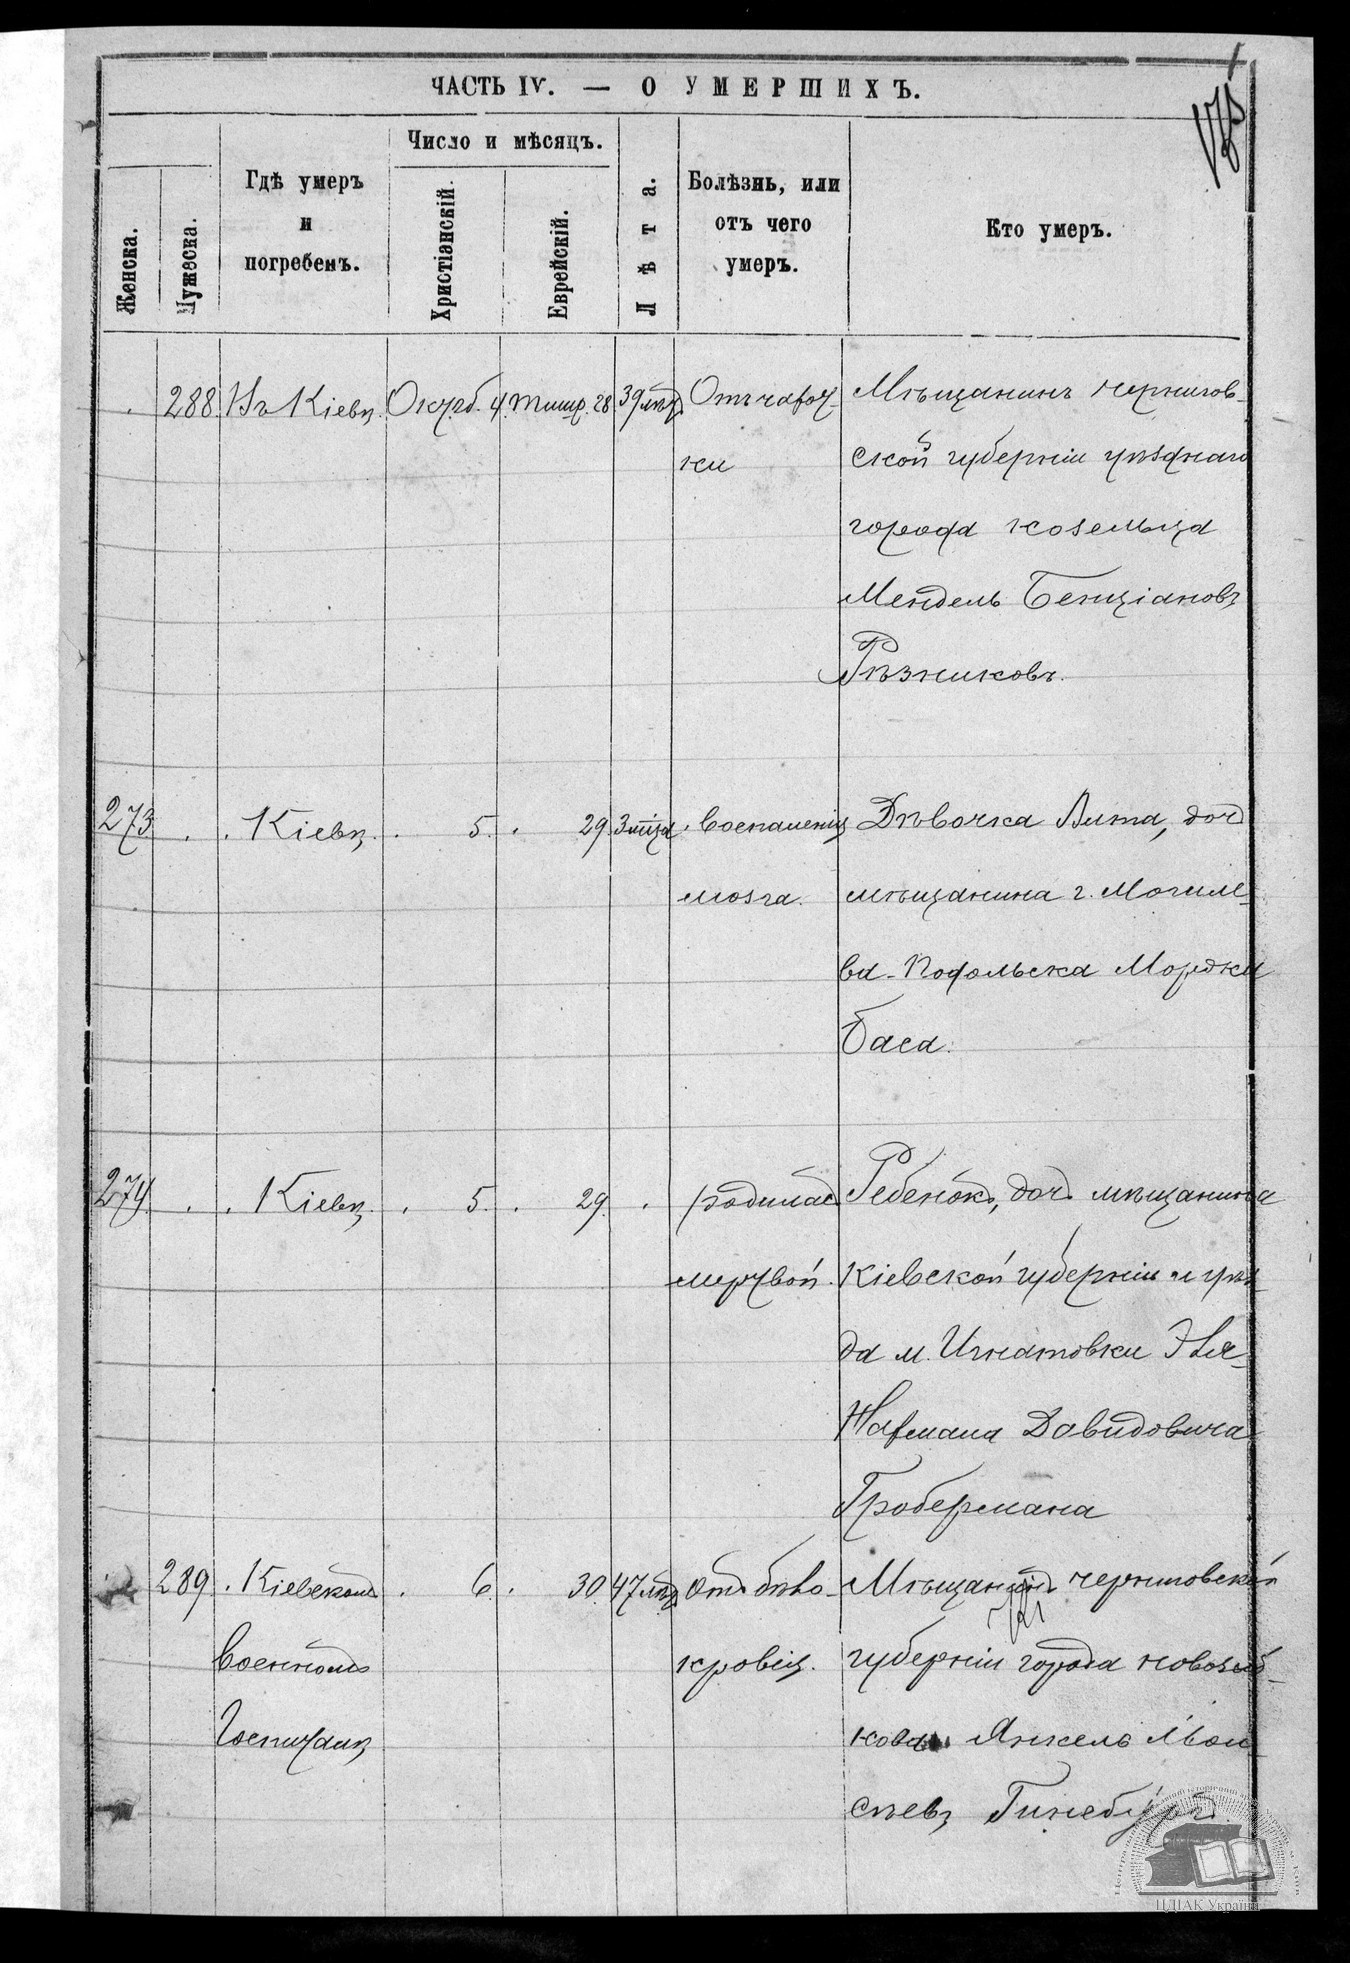 ЧАСТЬ IV. — О УМЕРШИХЪ.
Женска.
Мужеска.
Гдѣ умеръ
и
погребенъ.
Число и мѣсяцъ.
Христіанскій.
Еврейскій.
Лѣта.
Болѣзнь, или
отъ чего
умеръ.
Кто умеръ.
288 Въ Кіевѣ Октяб. 4. Тишр. 28 39 лѣтъ Отъ чахот-
ки
Мѣщанинъ Чернигов-
ской губерніи уѣзднаго
города Козельца
Мендель Бенціановъ
Рѣзниковъ.
273 Кіевѣ. 5. 29 3 мѣца воспаленія
мозга.
Дѣвочка Вита, дочъ
мѣщанина г. Могиле-
ва-Подольска Мордки
Баса.
274 Кіевѣ. 5. 29.
родилась
мертвой.
Ребенокъ, дочъ мѣщанина
Кіевской губерніи и уѣз-
да м. Игнатовки Эля-
Нахмана Давидовича
Гробермана
289 Кіевскомъ
военномъ
Госпиталѣ
6. 30. 47 лѣтъ отъ бѣло-
кровія.
Мѣщанинъ Черниговской
губерніи города Новозыб-
кова Янкель Мои-
сѣевъ Гинсбургъ.
ЦДІАК України